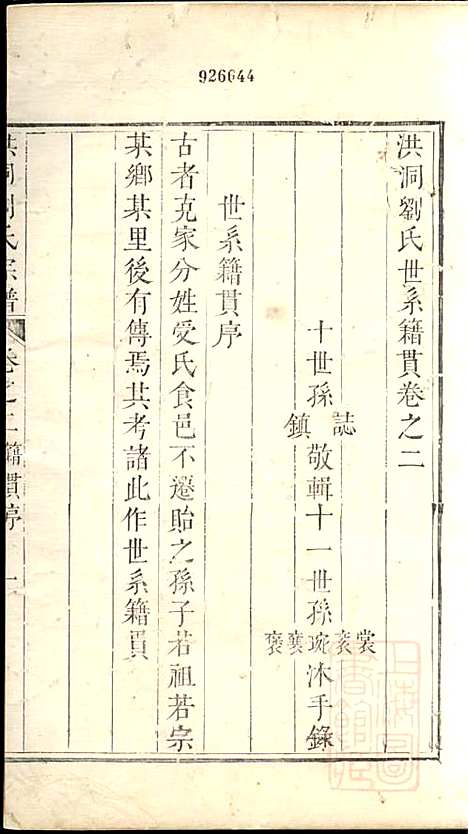 926644
洪洞劉氏世系籍貫卷之二
十世孫
誌
鎮
敬輯十一世孫
裳
衮
琬
襄
褒
沐手錄
世系籍貫序
古者克家分姓受氏食邑不遷貽之孫子若祖若宗
某鄉某里後有傳焉其考諸此作世系籍貫
洪洞劉氏宗譜
卷之二籍貫序
一
上海圖書館藏